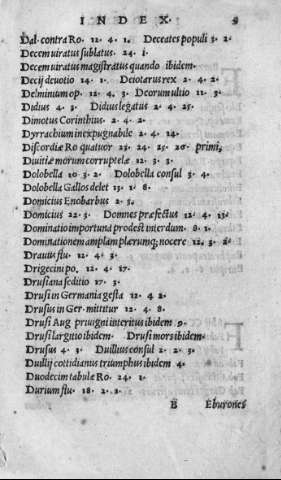 INDEX 5
Dal. contra Ro. 12. 4. 1. Deceates populi 3. 2.
Decemuiratus sublatus. 24. 1.
Decemuiratus magistratus quando ibidem.
Decij deuotio 14. 1. Deiotarus rex 2. 4. 2.
Delminium op. 12. 4. 3. Deorum ultio 11. 3.
Didius 4. 3. Didius legatus 2. 4. 25.
Dimotus Corinthius. 2. 4. 2.
Dyrrachium inexpugnabile 2. 4. 14.
Discordiæ Ro quatuor 23. 24. 25. 20. primi,
Diuitiæ morum corruptelæ 12. 3. 3.
Dolobella 10. 3. 2. Dolobella consul 3. 4.
Dolobella Gallos delet 13. 1. 8.
Domicius Enobarbus 2. 3.
Domicius 22. 3. Domnes præfectus 12. 4. 13.
Dominatio importuna prodest interdum. 8. 1.
Dominationem amplam plerunq; nocere 12. 3. 2.
Drauus flu. 12. 4. 3.
Drigecini po. 12. 4. 17.
Drusiana seditio 17. 3.
Drusi in Germania gesta 12. 4 2.
Drusus in Ger. mittitur 12. 4. 8.
Drusi Aug. priuigni interitus ibidem 9.
Drusi largitio ibidem. Drusi mors ibidem.
Drusus 4. 3. Duillius consul 2. 2. 3.
Duillij cottidianus triumphus ibidem 4.
Duodecim tabulæ Ro. 24. 1.
Durium flu. 18. 2. 2.
B Eburones